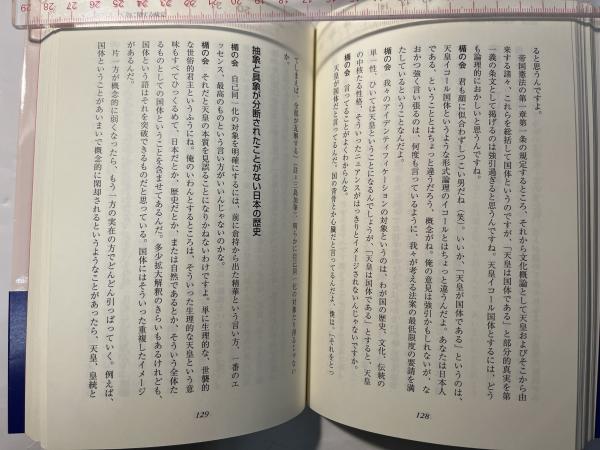 ると思うんですよ。
帝国憲法の第一章第一条の規定するところ、それから文化概論として天皇およびそこから由
来する諸々、これらを総括して国体というのですが、「天皇は国体である」と部分的真実を第
一義の条文として掲げるのは強引過ぎると思うんですね。天皇イコール国体とするには、どう
も論理的におかしいと思うんですね。
楯の会 君も顔に似合わずしつこい男だね（笑）。いいか、「天皇が国体である」というのは、
天皇イコール国体というような形式論理のイコールとはちょっと違うんだよ。あなたは日本人
である、ということとはちょっと違うだろう、概念がね。俺の意見は強引かもしれないが、な
おかつ強く言い張るのは、何度も言っているように、我々が考える法案の最低限度の要請を満
たしているということなんだよ。
楯の会 我々のアイデンティフィケーションの対象というのは、わが国の歴史、文化、伝統の
単一性、ひいては天皇ということになるんでしょうが、「天皇は国体である」とすると、天皇
の中核たる性格、そういったニュアンスがはっきりとイメージされないんじゃないですか。
楯の会 言ってることがよくわからんな。
天皇が国体だと言ってるんだ、国の背骨とか心臓だと言ってるんだよ、僕は。「それをとっ
128
てしまえば、全部が瓦解する」（註＝三島加筆）。明らかに自己同一化の対象
か。
抽象と具象が分断されたことがない日本の歴史
楯の会 自己同一化の対象を明確にするには、前に倉持から出た精華という言い方、一番のエ
ッセンス、最高のものという言い方がいいんじゃないのかな。
楯の会 それだと天皇の本質を見誤ることになりかねないわけですよ。単に生理的な、世襲的
な世俗的君主というふうにね。俺のいわんとするところは、そういった生理的な天皇という意
味もすべてひっくるめて、日本だとか、歴史だとか、または自然であるとか、そういう全体た
るものとしての国体ということを含ませてあるんだ。多少拡大解釈のきらいもあるけれども、
国体という語はそれを突破できうるものだと思っている。国体にはそういった重複したイメージ
があるんだ。
片一方が概念的に弱くなったら、もう一方の実在の方でどんどん引っぱっていく。例えば、
国体ということがあいまいで概念的に閑却されるというようなことがあったら、天皇、皇統と
129